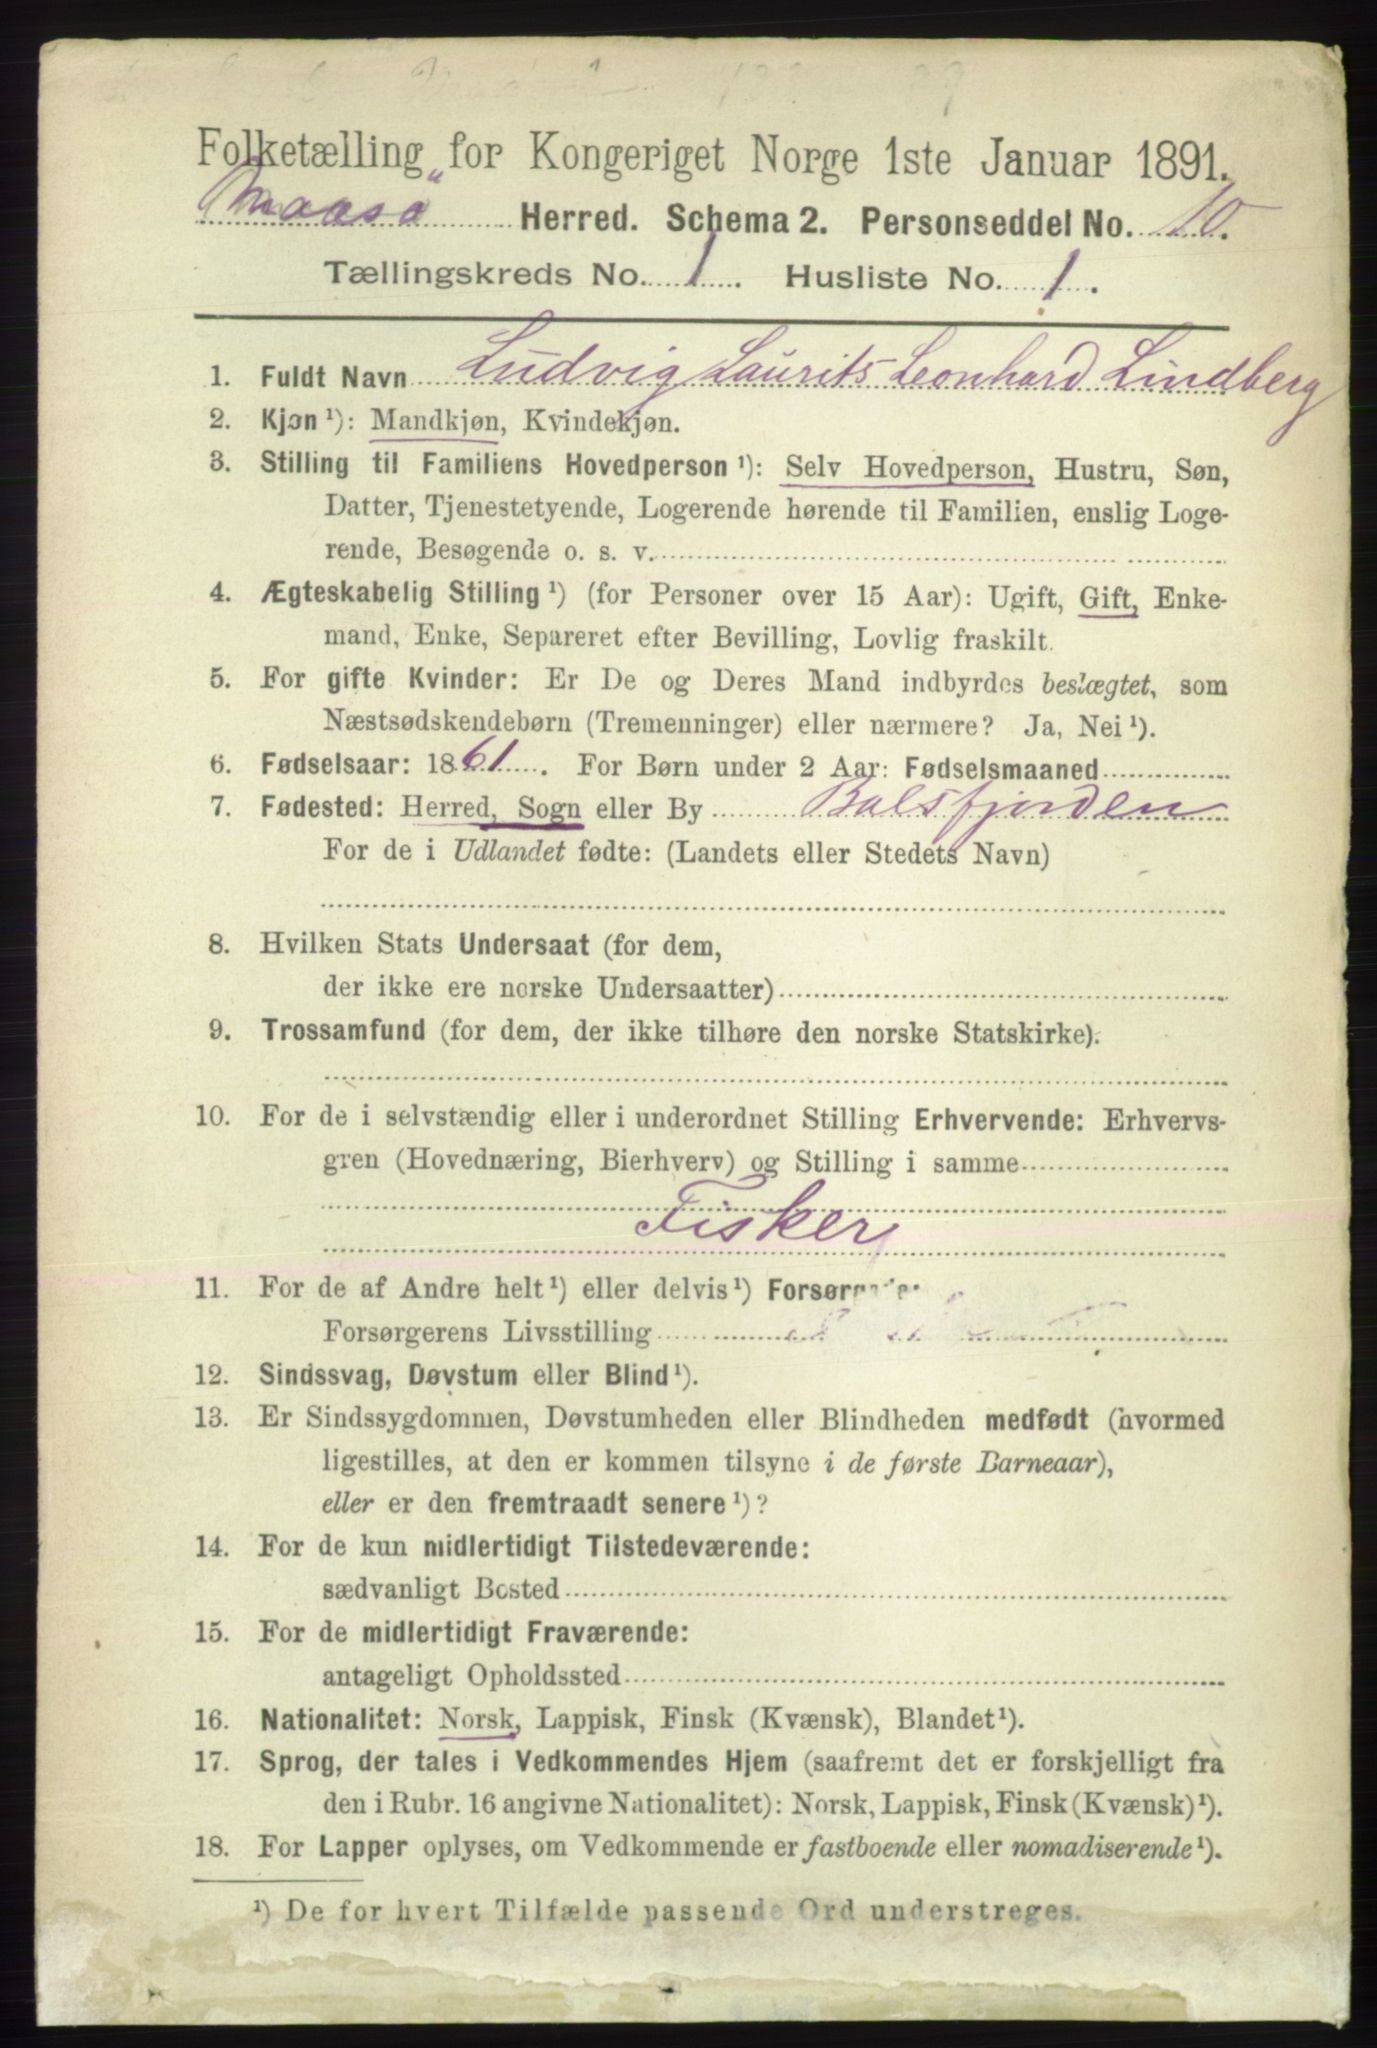 Folketælling for Kongeriget Norge 1ste Januar 1891.
Maasö Herred. Schema 2. Personseddel No. 10.
Tællingskreds No. 1. Husliste No. 1.
1. Fuldt Navn Ludvig Laurits Leonhard Lindberg
2. Kjøn ¹): Mandkjøn, Kvindekjøn.
3. Stilling til Familiens Hovedperson ¹): Selv Hovedperson, Hustru, Søn,
Datter, Tjenestetyende, Logerende hørende til Familien, enslig Loge-
rende, Besøgende o. s. v.
4. Ægteskabelig Stilling ¹) (for Personer over 15 Aar): Ugift, Gift, Enke-
mand, Enke, Separeret efter Bevilling, Lovlig fraskilt.
5. For gifte Kvinder: Er De og Deres Mand indbyrdes beslægtet, som
Næstsødskendebørn (Tremenninger) eller nærmere? Ja, Nei ¹).
6. Fødselsaar: 1861. For Børn under 2 Aar: Fødselsmaaned
7. Fødested: Herred, Sogn eller By Balsfjorden
For de i Udlandet fødte: (Landets eller Stedets Navn)
8. Hvilken Stats Undersaat (for dem,
der ikke ere norske Undersaatter)
9. Trossamfund (for dem, der ikke tilhøre den norske Statskirke).
10. For de i selvstændig eller i underordnet Stilling Erhvervende: Erhvervs-
gren (Hovednæring, Bierhverv) og Stilling i samme
Fisker
11. For de af Andre helt ¹) eller delvis ¹) Forsørgede:
Forsørgerens Livsstilling
12. Sindssvag, Døvstum eller Blind ¹).
13. Er Sindssygdommen, Døvstumheden eller Blindheden medfødt (hvormed
ligestilles, at den er kommen tilsyne i de første Barneaar),
eller er den fremtraadt senere ¹)?
14. For de kun midlertidigt Tilstedeværende:
sædvanligt Bosted
15. For de midlertidigt Fraværende:
antageligt Opholdssted
16. Nationalitet: Norsk, Lappisk, Finsk (Kvænsk), Blandet ¹).
17. Sprog, der tales i Vedkommendes Hjem (saafremt det er forskjelligt fra
den i Rubr. 16 angivne Nationalitet): Norsk, Lappisk, Finsk (Kvænsk) ¹).
18. For Lapper oplyses, om Vedkommende er fastboende eller nomadiserende ¹).
¹) De for hvert Tilfælde passende Ord understreges.